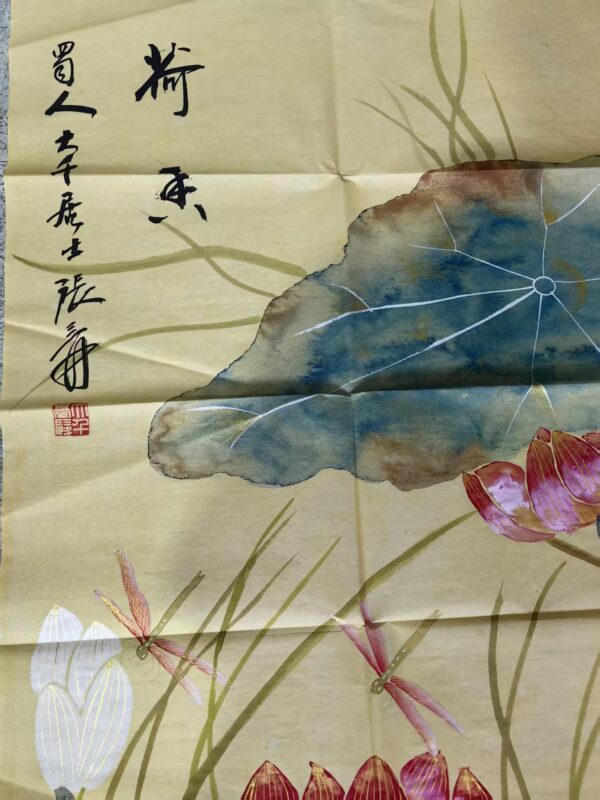 荷香
蜀人大千居士張爰
大千